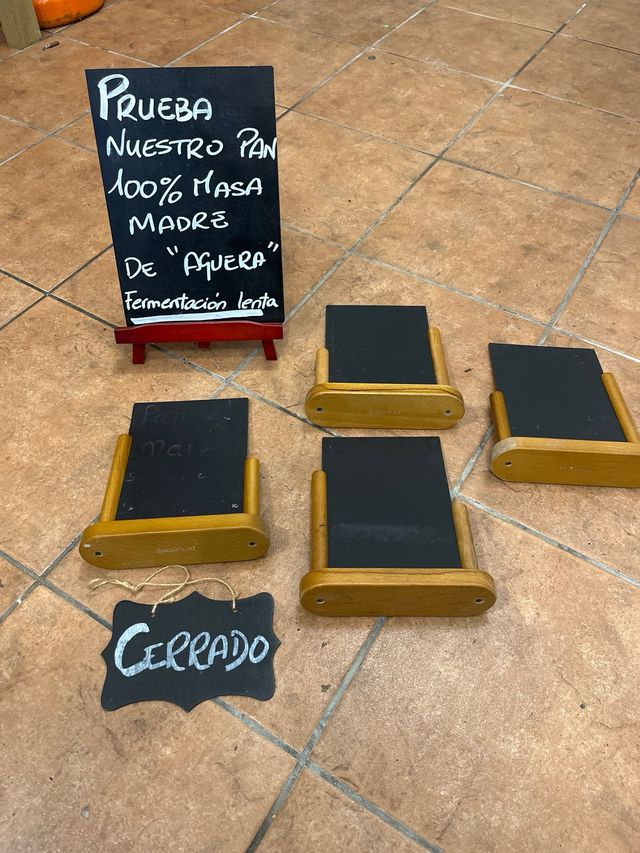 PRUEBA
NUESTRO PAN
100% MASA
MADRE
DE "AGUERA"
Fermentación lenta
Pan
Maiz
CERRADO